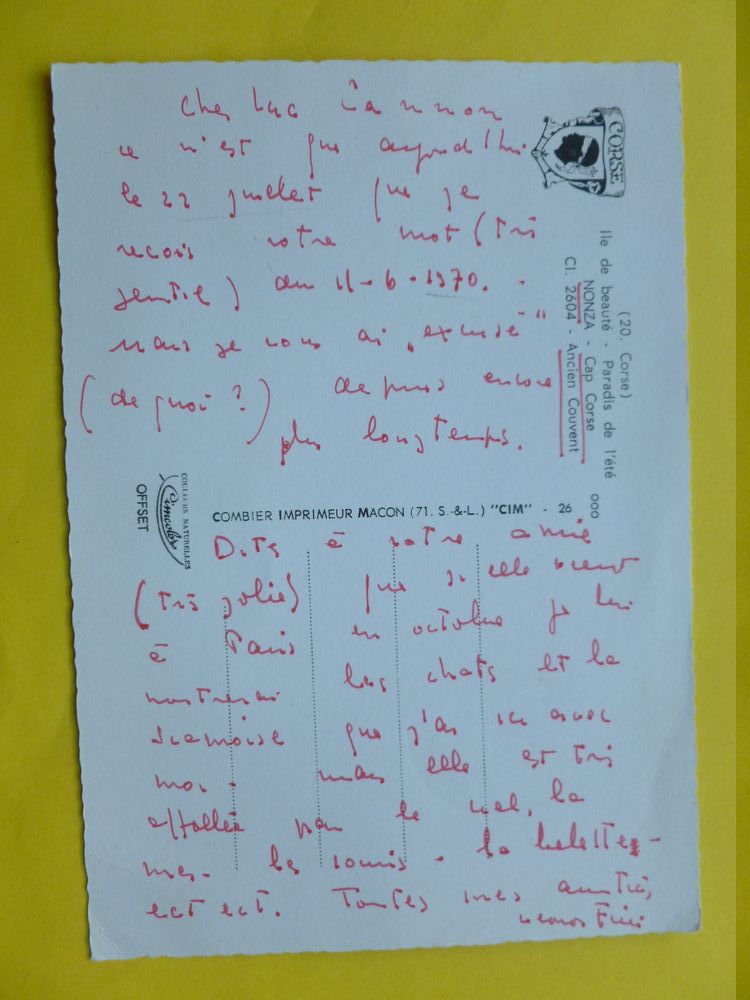 cher Luc
ce n'est que aujourd'hui
le 22 juillet que je
recois votre mot (très
gentil) du 11-6-1970.
mais je vous ai „excusé"
(de quoi ?) depuis encore
plus longtemps.
CORSE
(20. Corse)
Ile de beauté - Paradis de l'été
NONZA - Cap Corse
Cl. 2604 - Ancien Couvent
COULEURS NATURELLES
Cimcolor
OFFSET
COMBIER IMPRIMEUR MACON (71. S.-&-L.) "CIM" - 26 000
Dites à votre amie
(très jolie) que si elle vient
à Paris en octobre je lui
montrerai les chats et la
siamoise que j'ai ici avec
moi. mais elle est très
affollée par le ciel, la
mer. les souris. la belette-
ect ect. Toutes mes amitiés
Leonor Fini